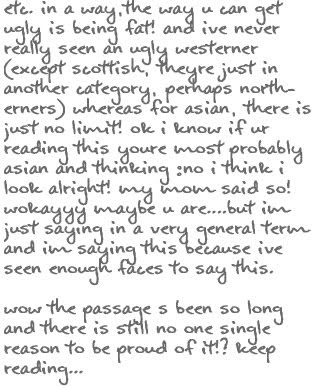 etc. in a way,the way u can get
ugly is being fat! and ive never
really seen an ugly westerner
(except scottish, theyre just in
another category, perhaps north-
erners) whereas for asian, there is
just no limit! ok i know if ur
reading this youre most probably
asian and thinking :no i think i
look alright! my mom said so!
wokayyy maybe u are....but im
just saying in a very general term
and im saying this because ive
seen enough faces to say this.
wow the passage s been so long
and there is still no one single
reason to be proud of it!? keep
reading...